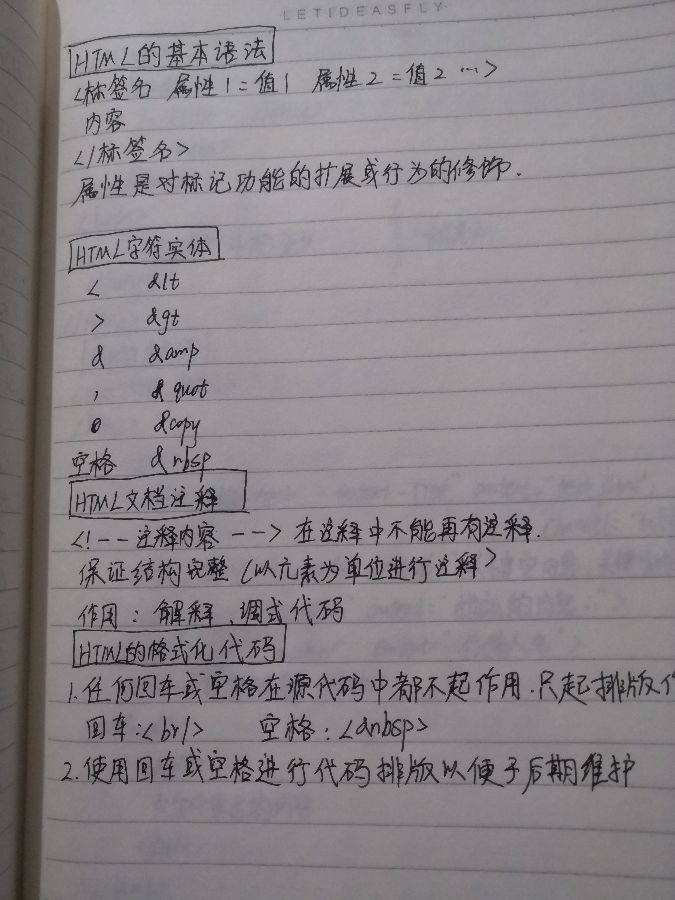 LETIDEASFLY
HTML的基本语法
<标签名 属性1=值1 属性2=值2 …>
内容
</标签名>
属性是对标记功能的扩展或行为的修饰.
HTML字符实体
< &lt
> &gt
& &amp
, &quot
© &copy
空格 &nbsp
HTML文档注释
<!--注释内容 --> 在注释中不能再有注释.
保证结构完整(以元素为单位进行注释>
作用:解释、调式代码
HTML的格式化代码
1.任何回车或空格在源代码中都不起作用.只起排版作
回车:<br/> 空格:<&nbsp>
2.使用回车或空格进行代码排版以便于后期维护